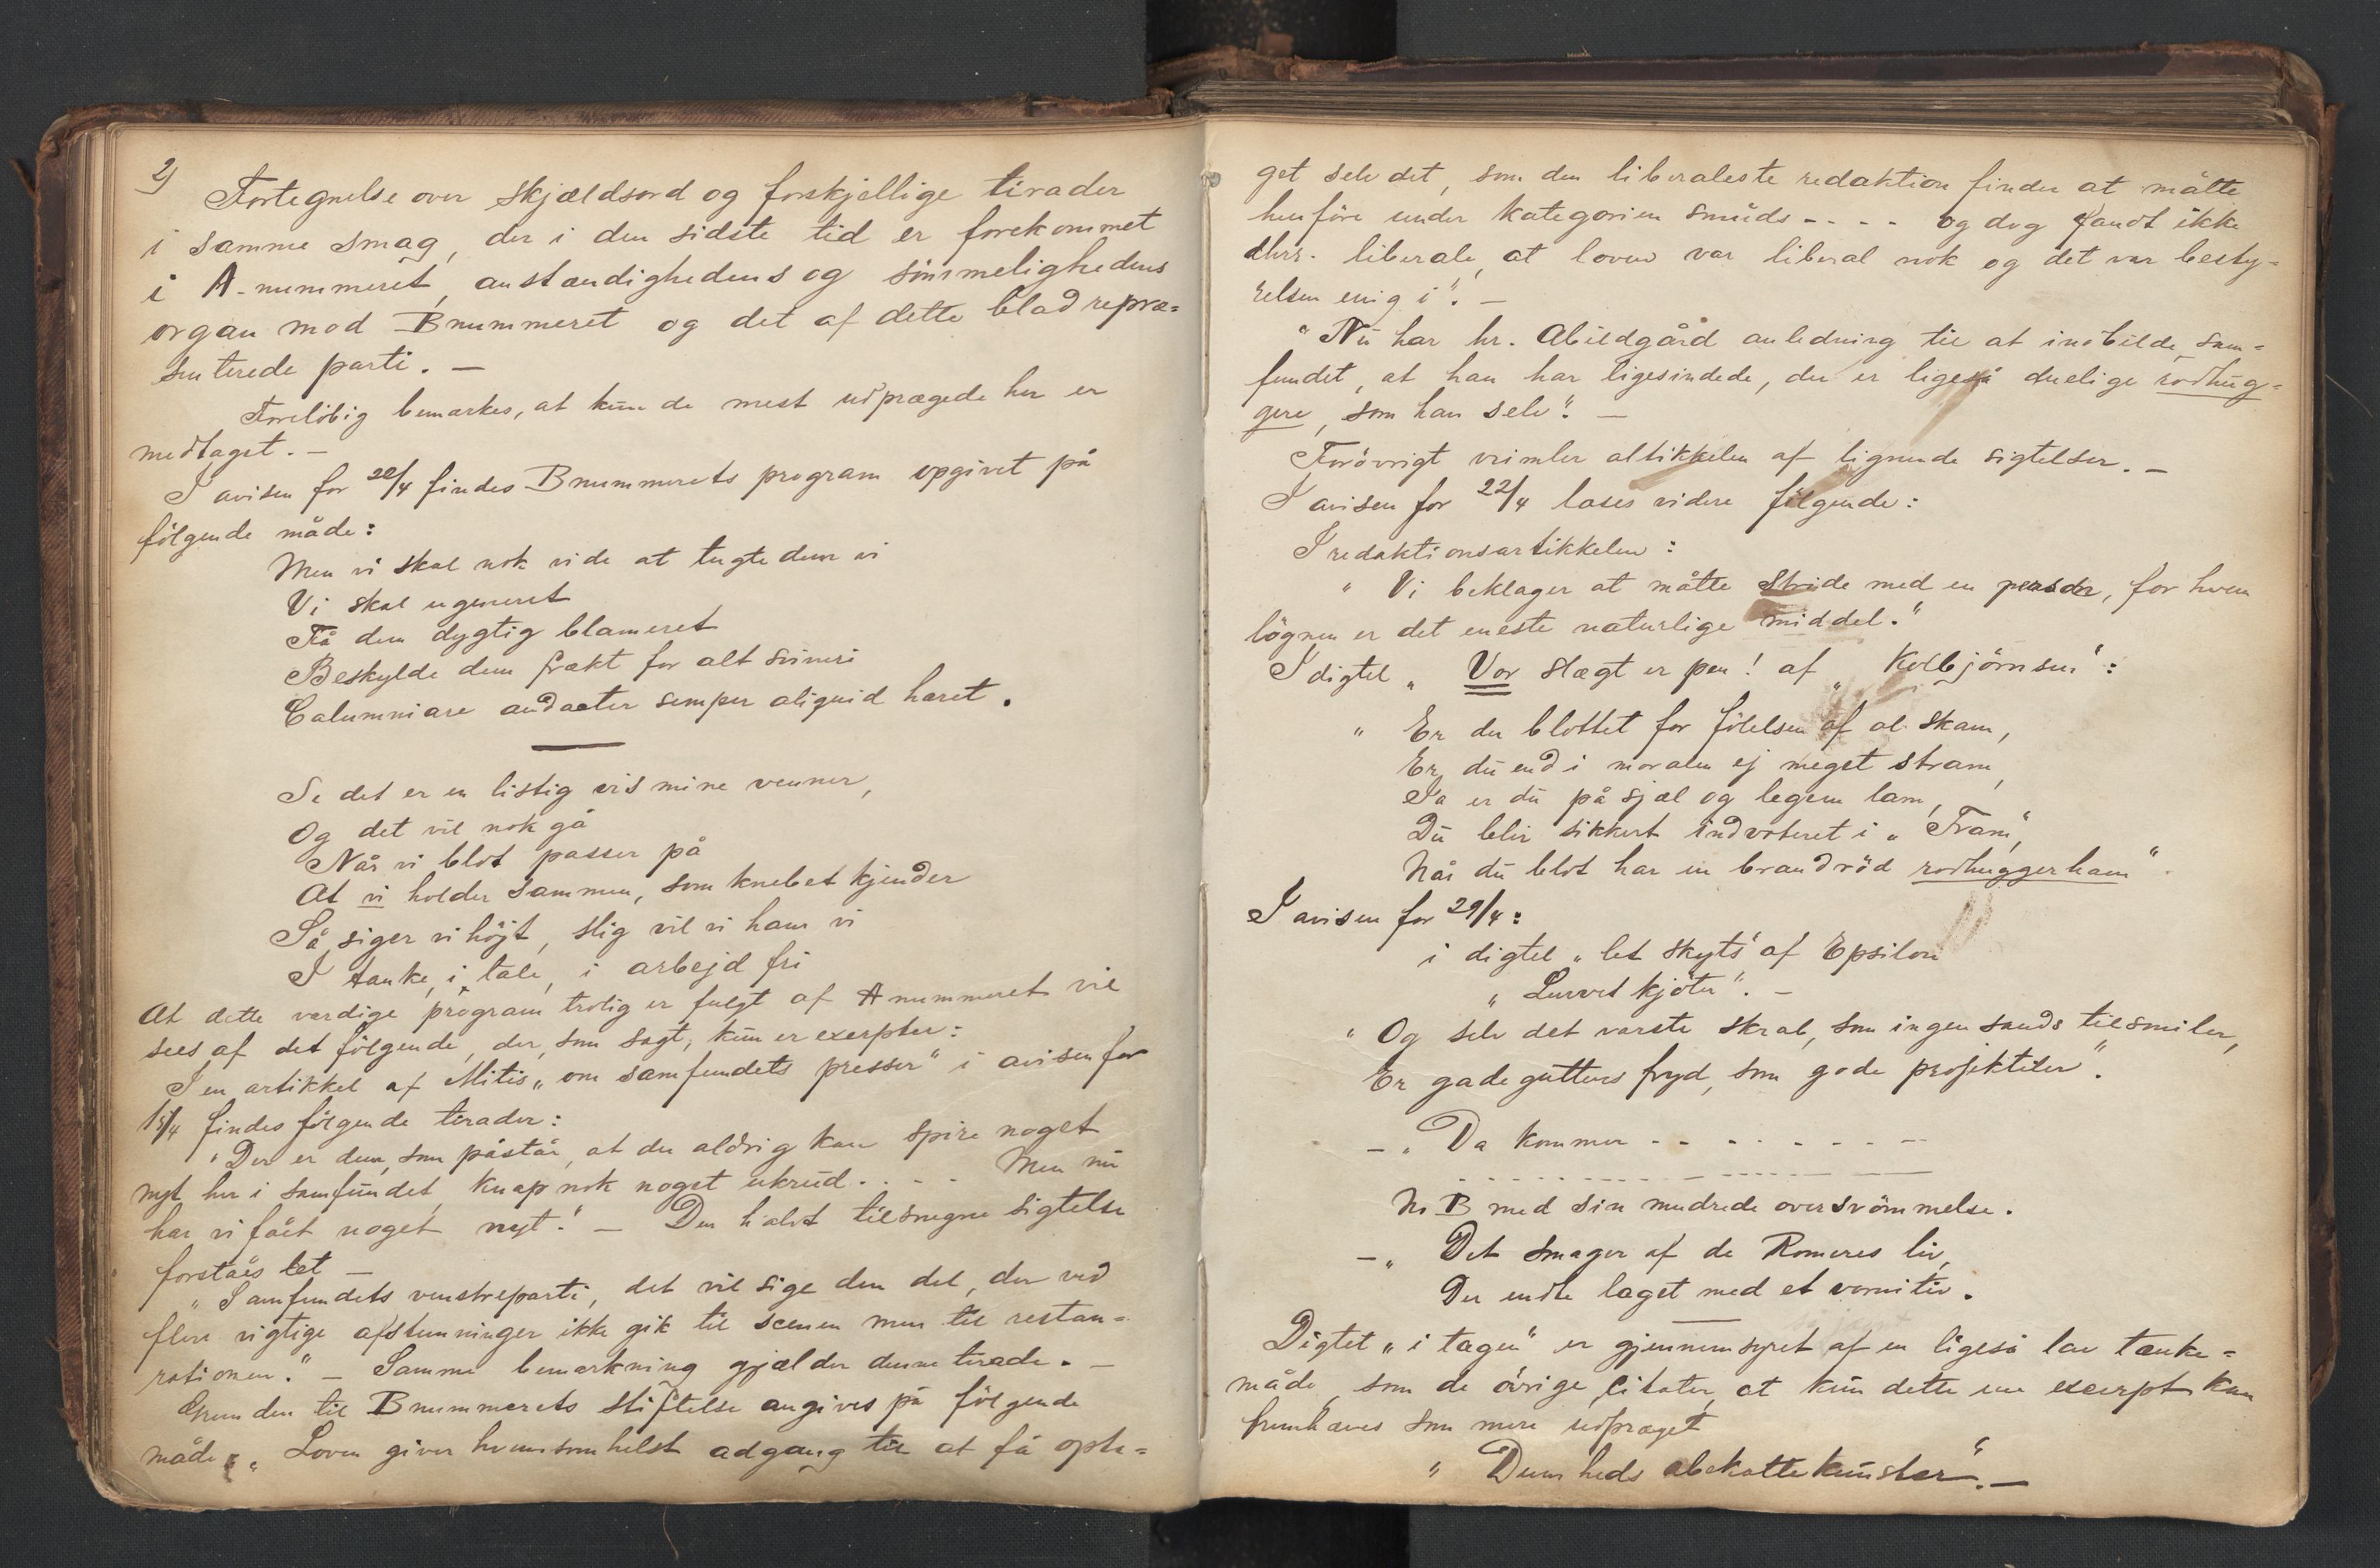 2)
Fortegnelse over skjældsord og forskjellige tirader
i samme smag, der i den sidste tid er forekommet
i A-nummeret, anstændighedens og sömmelighedens
organ mod Bnummeret og det af dette blad repræ-
senterede parti. —
Foreløbig bemærkes, at kun de mest udprægede her er
medtaget. —
I avisen for 22/4 findes Bnummerets program opgivet på
fölgende måde:
Men vi skal nok vide at tugte dem vi
Vi skal ugeneret
Få dem dygtig blameret
Beskylde dem frækt for alt svineri
Calumniare audacter semper aliquid hæret.
Se det er en listig vis mine venner,
Og det vil nok gå
Når vi blot passer på
At vi holder sammen, som knebet kjender
Så siger vi höjt, slig vil vi ham vi
I tanke, i tale, i arbejd fri
At dette værdige program trolig er fulgt af Anummeret vil
sees af det fölgende, der, som sagt, kun er exerpter:
I en artikkel af Mitis „om samfundets presser" i avisen for
15/4 findes fölgende tirader:
"Der er dem, som påstår, at der aldrig kan spire noget
nyt her i samfundet, knap nok noget ukrud. . - - Men nu
har vi fået noget nyt." — Den halvt tilsnegne sigtelse
forståes let —
„Samfundets venstreparti, det vil sige den del, der ved
flere vigtige afstemninger ikke gik til scenen men til restau-
rationen." — Samme bemærkning gjælder denne tirade. —
Grunden til Bnummerets stiftelse angives på fölgende
måde: „Loven giver hvemsomhelst adgang til at få opta-
get selv det, som den liberaleste redaktion finder at måtte
henföre under kategorien smuds - - - - og dog fandt ikke
dhrr. liberale, at loven var liberal nok og det var besty-
relsen enig i". —
"Nu har hr. Abildgård anledning til at indbilde sam-
fundet, at han har ligesindede, der er ligeså duelige rodhug-
gere, som han selv". —
Forövrigt vrimler altikkelen af lignende sigtelser. —
I avisen for 22/4 læses videre fölgende:
I redaktionsartikkelen:
" Vi beklager at måtte stride med en person, for hvem
lögnen er det eneste naturlige middel."
I digtet „ Vor slægt er pen! af „ Kolbjörnsen":
" Er du blottet for fölelsen af al skam,
Er du end i moralen ej meget stram,
Ja er du på sjæl og legem lam,
Du blir sikkert indvoteret i „ Fram",
Når du blot har en brandröd rodhuggerham".
I avisen for 29/4:
i digtet „let skyts" af Epsilon
„ Lurvet kjöter". —
" Og selv det værste skrab, som ingen sands tilsmiler,
Er gadegutters fryd, som gode projektiler".
— „ Da kommer - - - - - - - -
- - - - - - - - - - - -
No B med sin mudrede oversvömmelse.
— „ Det smager af de Romeres liv,
Der endte laget med et vomitiv.
Digtet „i tagen" er gjennemsyret af en ligeså lav tænke-
måde, som de övrige citater, at kun dette ene exerpt kan
fremhæves som mere udpræget
" Dumheds abekattekunster". —